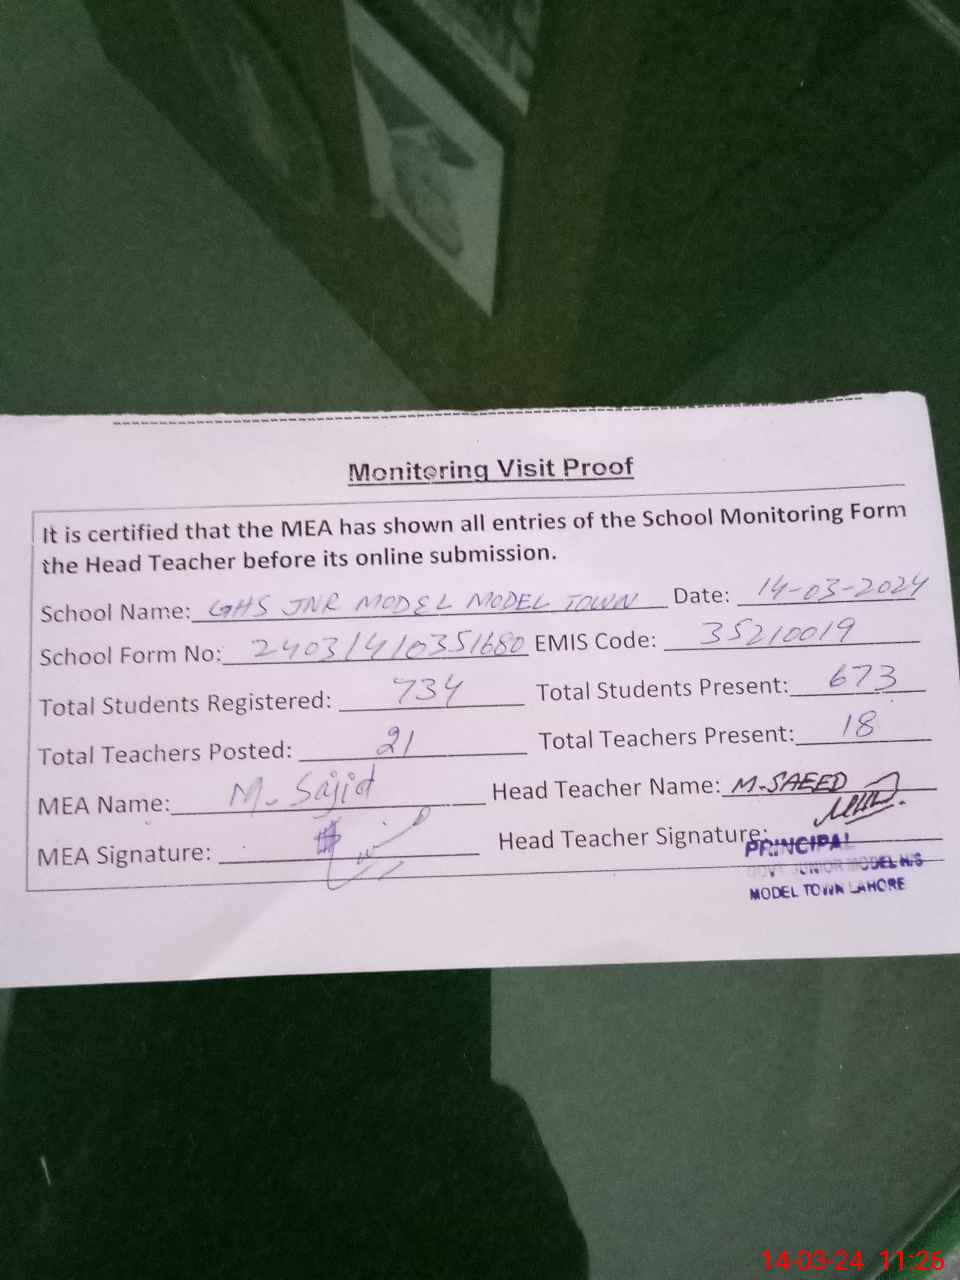 Monitoring Visit Proof
It is certified that the MEA has shown all entries of the School Monitoring Form
the Head Teacher before its online submission.
School Name: GHS JNR MODEL MODEL TOWN Date: 14-03-2024
School Form No: 24031410351680 EMIS Code: 35210019
Total Students Registered: 734 Total Students Present: 673
Total Teachers Posted: 21 Total Teachers Present: 18
MEA Name: M. Sajid Head Teacher Name: M.SAEED
MEA Signature: Head Teacher Signature:
PRINCIPAL
GOVT JUNIOR MODEL H/S
MODEL TOWN LAHORE
14-03-24 11:26